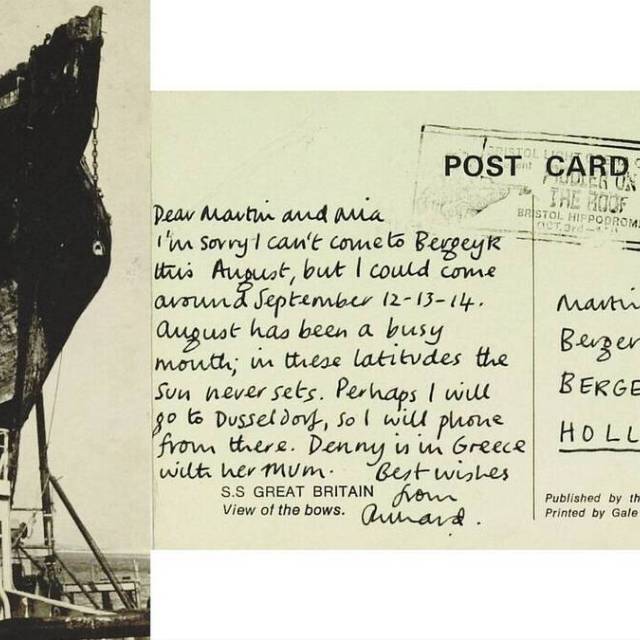 POST CARD
BRISTOL LIGHT
FIDDLER ON
THE ROOF
BRISTOL HIPPODROME
OCT. 3rd
Dear Martin and Mia
I'm sorry I can't come to Bergeyk
this August, but I could come
around September 12-13-14.
August has been a busy
month; in these latitudes the
sun never sets. Perhaps I will
go to Dusseldorf, so I will phone
from there. Denny is in Greece
with her mum. Best wishes
from
S.S GREAT BRITAIN
View of the bows.
Martin
Berger
BERGE
HOLL
Published by th
Printed by Gale